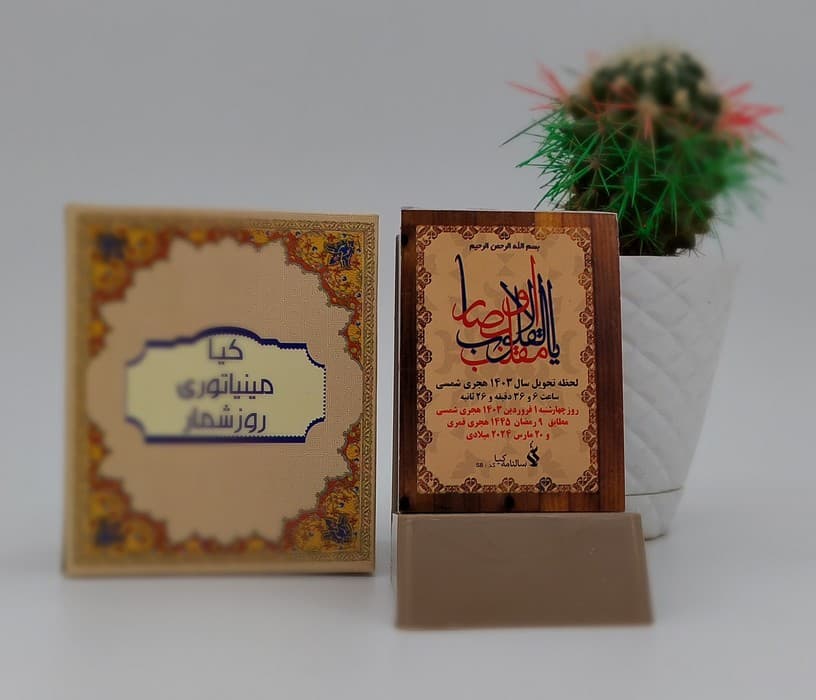 کیا
مینیاتوری
روزشمار
بسم الله الرحمن الرحیم
یا مقلب القلوب و الابصار
لحظه تحویل سال ۱۴۰۳ هجری شمسی
ساعت ۶ و ۳۶ دقیقه و ۲۶ ثانیه
روز چهارشنبه ۱ فروردین ۱۴۰۳ هجری شمسی
مطابق ۹ رمضان ۱۴۴۵ هجری قمری
و ۲۰ مارس ۲۰۲۴ میلادی
سالنامه کیا
کد: SB